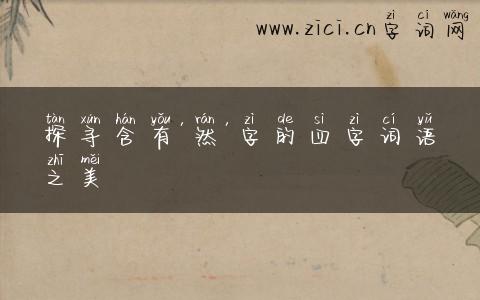 zì cí wǎng
www.zici.cn字词网
tàn xún hán yǒu, rán, zì de sì zì cí yǔ
探寻含有,然,字的四字词语
zhī měi
之美